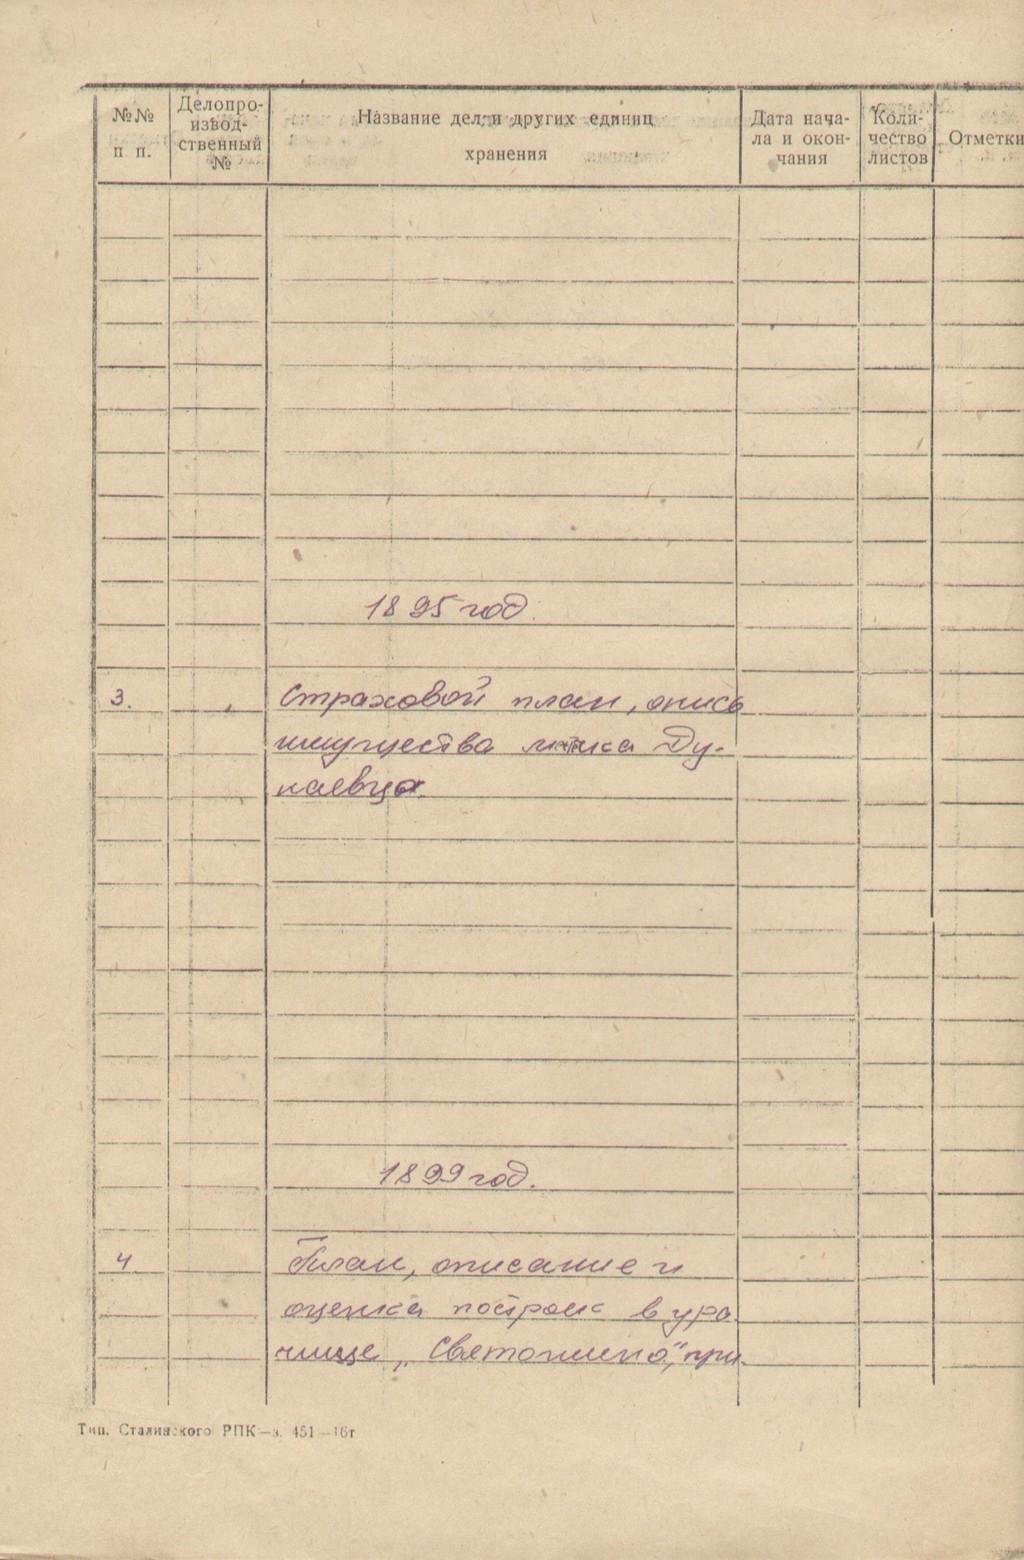 №№ п п.
Делопро-
извод-
ственный
№
Название дел и других единиц
хранения
Дата нача-
ла и окон-
чания
Коли-
чество
листов
Отметки
1895 год.
3. Страховой план, опись
имущества Ду-
наевца.
1899 год.
4 План, описание и
оценка построек в уро
чище „Святошино", при-
Тип. Сталинского РПК—з. 451—46г